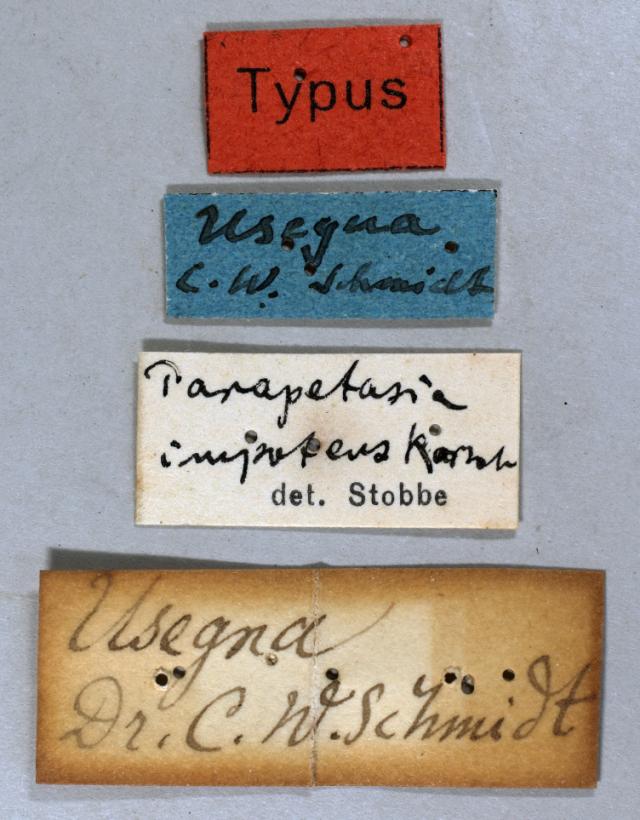 Typus
Usegua
C. W. Schmidt
Parapetasia
impotens Karsch
det. Stobbe
Usegna
Dr. C. W. Schmidt